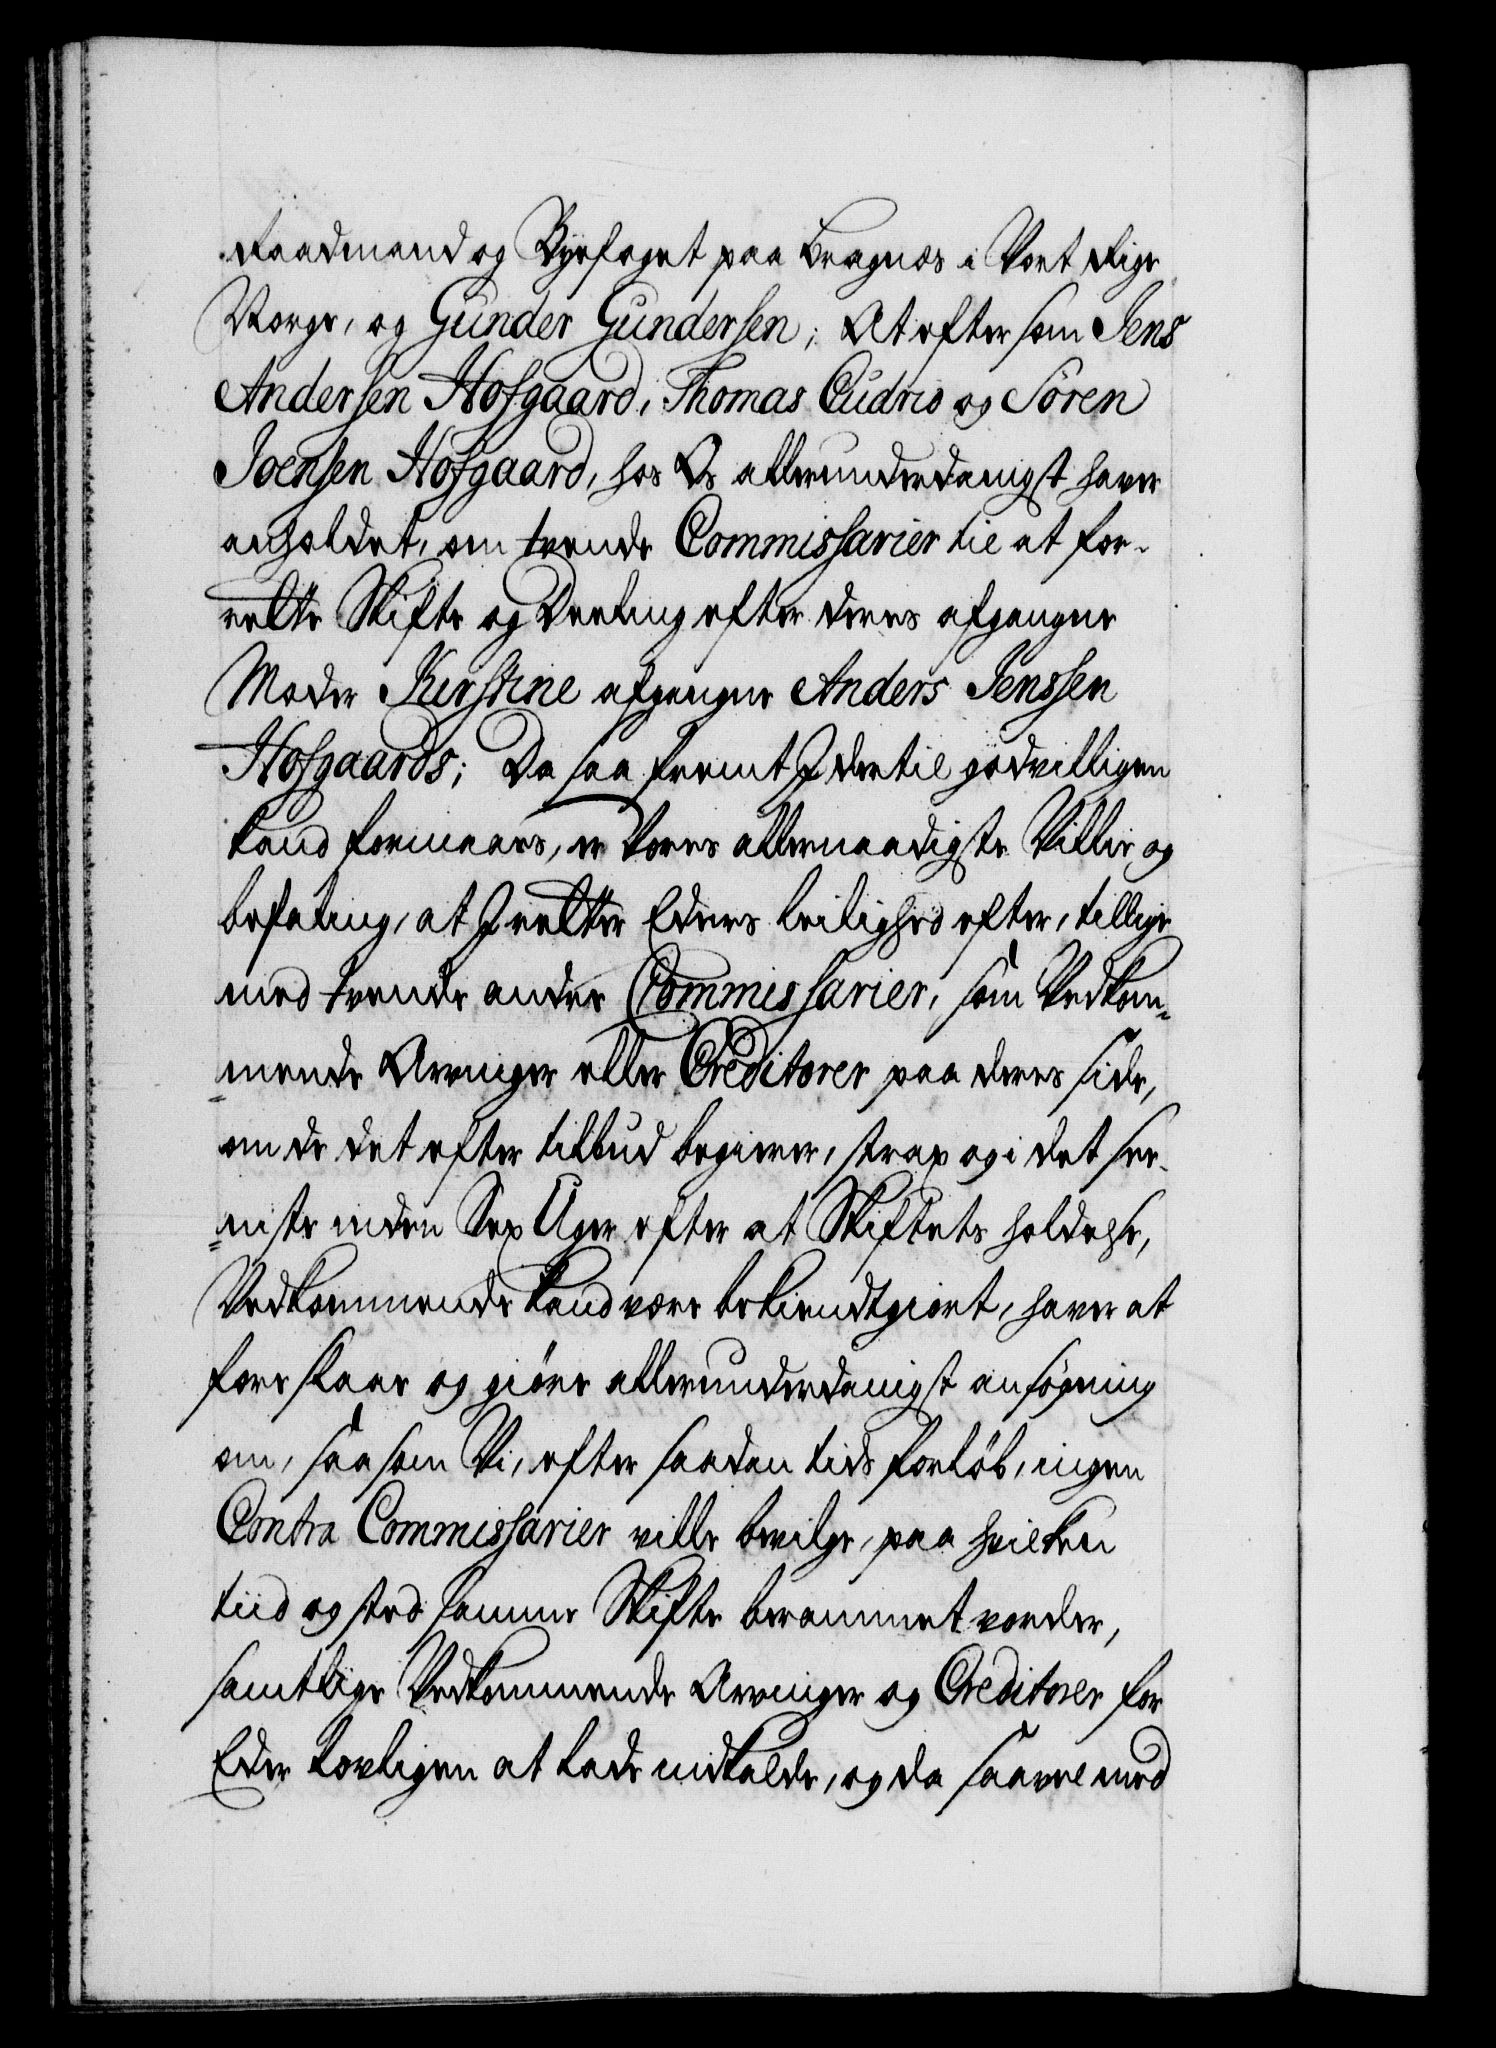 Raadmand og Byefoget paa Bragnæs i Vort Rige
Norge, og Gunder Gundersen; At eftersom Jens
Andersen Hofgaard, Thomas Cudrio og Sören
Joensen Hofgaard, hos Os allerunderdanigst haver
anholdet, om tvende Commissarier til at for-
rette Skifte og Deeling efter deres afgangne
Moder Kirstine afgangne Anders Jenssen
Hofgaards; Da saa fremt I dertil godvilligen
kand formaaes, er Vores allernaadigste Villie og
befaling, at I retter Eders leilighed efter, tillige
med tvende andre Commissarier, som Vedkom-
mende Arvinger eller Creditorer paa deres side,
om de det efter tilbud begierer, strax og i det see-
niste inden Sex Uger efter at Skiftets holdelse,
Vedkommende kand være bekiendtgiort, haver at
foreslaae og giöre allerunderdanigst ansögning
om, saasom Vi, efter saadan tids forlöb, ingen
Contra Commissarier ville bevilge, paa hvilken
tiid og sted samme Skifte berammet vorder,
samtlige Vedkommende Arvinger og Creditorer for
Eder lovligen at lade indkalde, og da saavel med